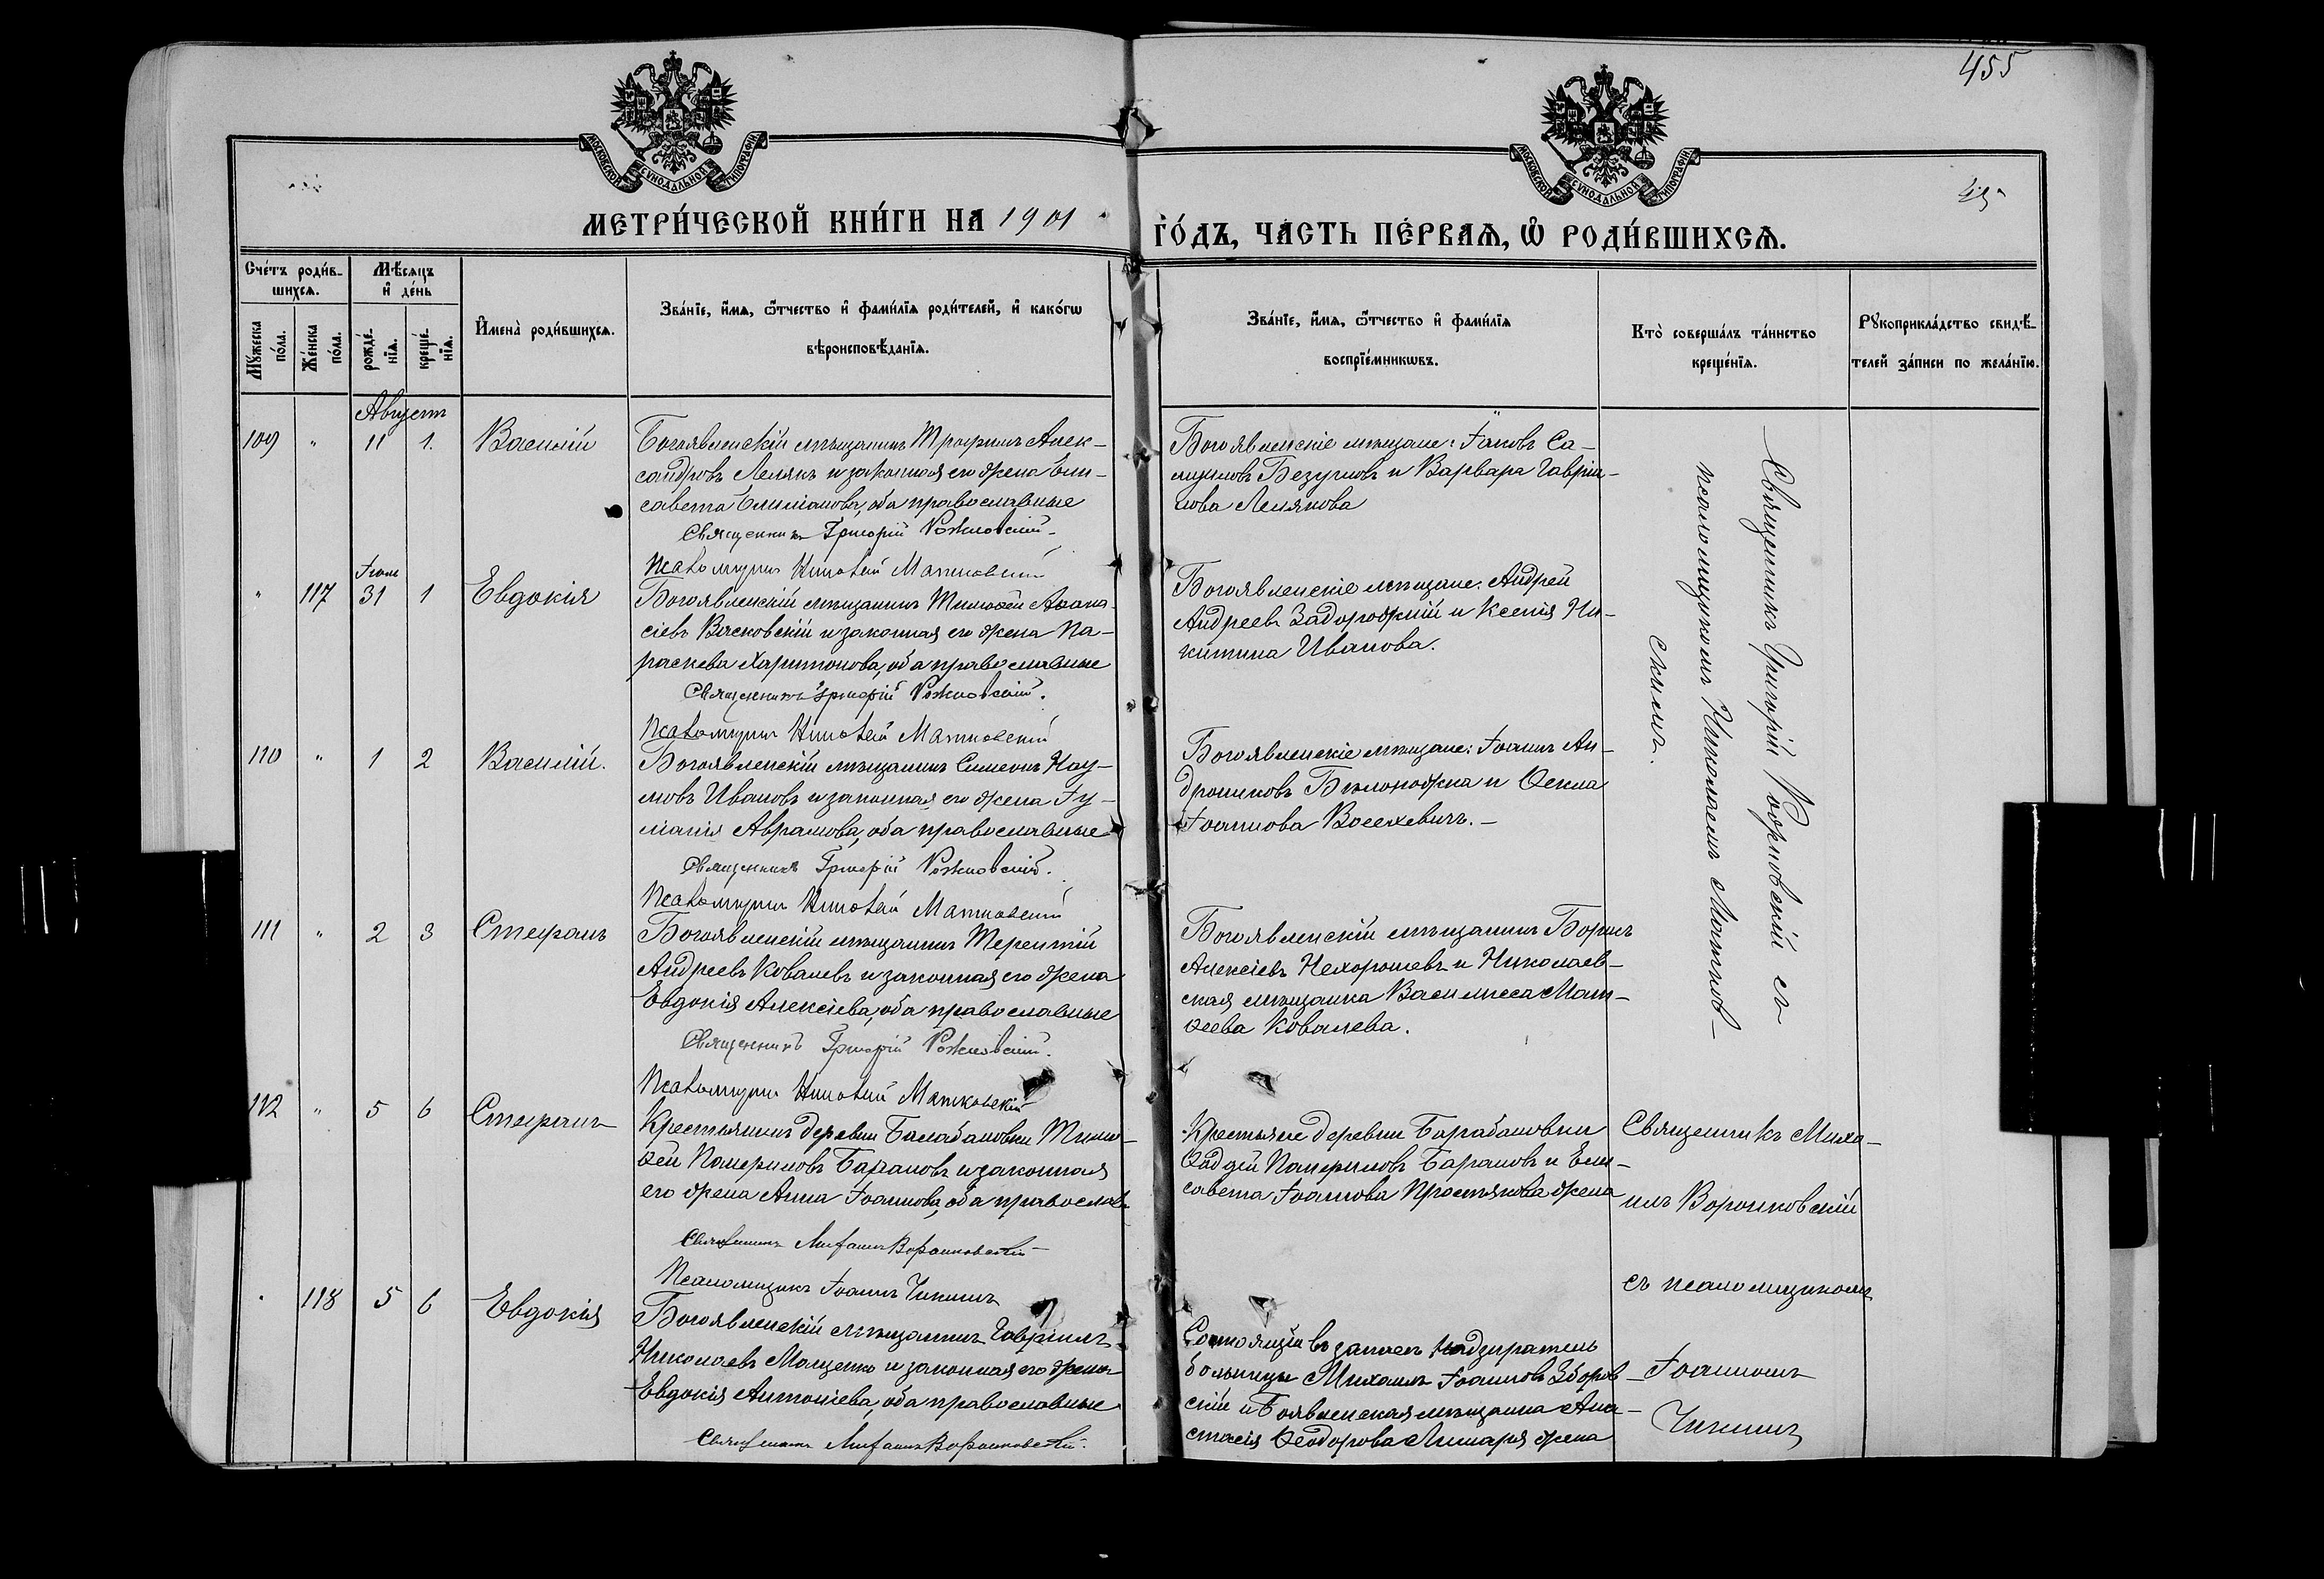 455
МОСКОВСКОЙ СѴНОДАЛЬНОЙ ТИПОГРАФІИ
МОСКОВСКОЙ СѴНОДАЛЬНОЙ ТИПОГРАФІИ
МЕТРИ́ЧЕСКОЙ КНИ́ГИ НА 1901
ГО́ДЪ, ЧА́СТЬ ПЕ́РВАѦ, Ѡ РОДИ́ВШИХСѦ.
Сче́тъ роди́в-
шихсѧ.
Мꙋжеска по́ла.
Же́нска по́ла.
Мѣ́сяцъ
и де́нь
рожде́-
нїѧ.
креще́-
нїѧ.
Имена̀ роди́вшихсѧ.
Зва́нїе, и́мѧ, ѻ́тчество и фами́лїѧ роди́телей, и како́гѡ
вѣроисповѣ́данїѧ.
Зва́нїе, и́мѧ, ѻ́тчество и фами́лїѧ
воспрїе́мникѡвъ.
Кто̀ соверша́лъ та́инство
креще́нїѧ.
Рꙋкоприкла́дство свидѣ́-
телей за́писи по жела́нїю.
Августъ
109 " 11 1. Василій
Богоявленскій мѣщанинъ Трофимъ Алек-
сандровъ Лелякъ и законная его жена Ели-
савета Емиліанова, оба православные
Священникъ Григорій
Псаломщикъ Николай Матковскій
Богоявленскіе мѣщане: Іаковъ Са-
муиловъ Безумовъ и Варвара Гавріи-
лова Лелякова
Священникъ Григорій съ
псаломщикомъ Николаемъ Матков-
скимъ.
Іюля
" 117 31 1 Евдокія
Богоявленскій мѣщанинъ Тимоѳей Аѳана-
сіевъ Васковскій и законная его жена Па-
раскева Харитонова, оба православные
Священникъ Григорій
Псаломщикъ Николай Матковскій
Богоявленскіе мѣщане: Андрей
Андреевъ Задорожній и Ксенія Ни-
китина Иванова.
110 " 1 2 Василій.
Богоявленскій мѣщанинъ Симеонъ Нау-
мовъ Ивановъ и законная его жена Іу-
ліанія Аврамова, оба православные
Священникъ Григорій
Псаломщикъ Николай Матковскій
Богоявленскіе мѣщане: Іоаннъ Ан-
дрониковъ Бѣлоножка и Ѳекла
Іоаннова
111 " 2 3 Стефанъ
Богоявленскій мѣщанинъ Терентій
Андреевъ Ковалевъ и законная его жена
Евдокія Алексіева, оба православные
Священникъ Григорій
Псаломщикъ Николай Матковскій
Богоявленскій мѣщанинъ Борисъ
Алексіевъ Нехорошевъ и Николаев-
ская мѣщанка Василисса Мат-
ѳеева Ковалева.
112 " 5 6 Стефанъ
Крестьянинъ деревни Балабановки Тимо-
ѳей Панфиловъ Барановъ и законная
его жена Анна Іоаннова, оба православ.
Священникъ Михаилъ Воронковскій
Псаломщикъ Іоаннъ Чикинъ
Крестьяне деревни Барабановки
Ѳаддей Панфиловъ Барановъ и Ели-
савета Іоаннова Простякова жена
Священникъ Миха-
илъ Воронковскій
съ псаломщикомъ
Іоанномъ
118 5 6 Евдокія
Богоявленскій мѣщанинъ Гавріилъ
Николаевъ Мащенко и законная его жена
Евдокія Антоніева, оба православные
Священникъ Михаилъ Воронковскій.
Состоящій въ запасѣ надзиратель
больницы Михаилъ Іоанновъ Зборов-
скій и Боявленская мѣщанка Ана-
стасія Ѳеодорова Лимаря жена